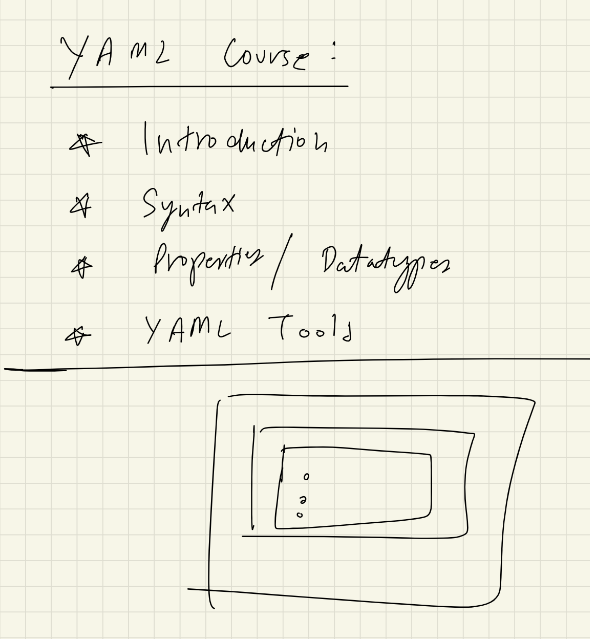 YAML Course:
Introduction
Syntax
Properties / Datatypes
YAML Tools